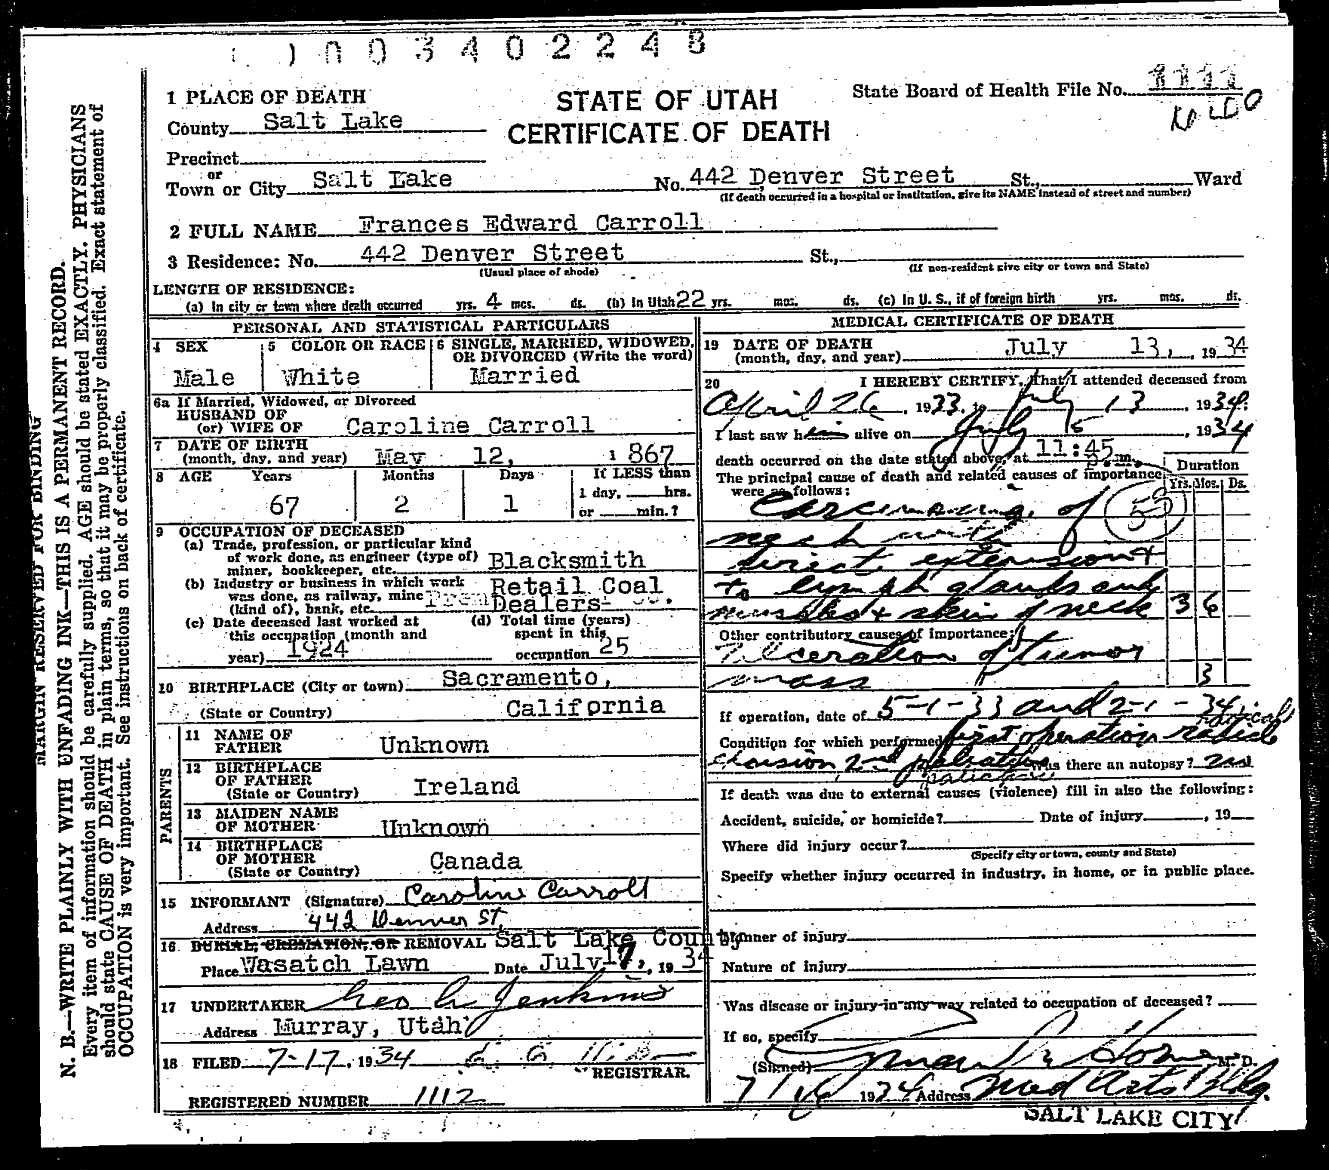 003402248
1 PLACE OF DEATH
STATE OF UTAH
CERTIFICATE OF DEATH
State Board of Health File No.
County Salt Lake
Precinct
or
Town or City Salt Lake No. 442 Denver Street St., Ward
(If death occurred in a hospital or institution, give its NAME instead of street and number)
2 FULL NAME Frances Edward Carroll
3 Residence: No. 442 Denver Street St.,
(Usual place of abode) (If non-resident give city or town and State)
LENGTH OF RESIDENCE:
(a) In city or town where death occurred yrs. 4 mos. ds. (b) In Utah 22 yrs. mos. ds. (c) In U. S., if of foreign birth yrs. mos. ds.
PERSONAL AND STATISTICAL PARTICULARS
4 SEX
Male
5 COLOR OR RACE
White
6 SINGLE, MARRIED, WIDOWED,
OR DIVORCED (Write the word)
Married
6a If Married, Widowed, or Divorced
HUSBAND OF
(or) WIFE OF Caroline Carroll
7 DATE OF BIRTH
(month, day, and year) May 12, 1867
8 AGE Years Months Days If LESS than
1 day, hrs.
67 2 1 or min.?
9 OCCUPATION OF DECEASED
(a) Trade, profession, or particular kind
of work done, as engineer (type of)
miner, bookkeeper, etc. Blacksmith
(b) Industry or business in which work
was done, as railway, mine
(kind of), bank, etc. Retail Coal
Dealers
(c) Date deceased last worked at
this occupation (month and
year) 1924
(d) Total time (years)
spent in this
occupation 25
10 BIRTHPLACE (City or town) Sacramento,
(State or Country) California
PARENTS
11 NAME OF
FATHER Unknown
12 BIRTHPLACE
OF FATHER
(State or Country) Ireland
13 MAIDEN NAME
OF MOTHER Unknown
14 BIRTHPLACE
OF MOTHER
(State or Country) Canada
15 INFORMANT (Signature) Caroline Carroll
Address 442 Denver St
16 BURIAL, CREMATION, OR REMOVAL Salt Lake County
Place Wasatch Lawn Date July 17, 1934
17 UNDERTAKER Geo A. Jenkins
Address Murray, Utah
18 FILED 7-17, 1934
REGISTRAR.
REGISTERED NUMBER 1112
MEDICAL CERTIFICATE OF DEATH
19 DATE OF DEATH
(month, day, and year) July 13, 1934
20 I HEREBY CERTIFY, That I attended deceased from
April 26, 1933, to July 13, 1934.
I last saw him alive on July 1934
death occurred on the date stated above, at 11:45 P.m.
The principal cause of death and related causes of importance
were as follows:
Duration
Yrs. Mos. Ds.
Carcinoma of
neck with
direct extension
to lymph glands and
muscles & skin of neck 3 6
Other contributory causes of importance:
Ulceration of tumor
mass 3
If operation, date of 5-1-33 and 2-1-34
Condition for which performed first operation radical
excision 2nd palliative Was there an autopsy?
If death was due to external causes (violence) fill in also the following:
Accident, suicide, or homicide? Date of injury , 19
Where did injury occur?
(Specify city or town, county and State)
Specify whether injury occurred in industry, in home, or in public place.
Manner of injury
Nature of injury
Was disease or injury in any way related to occupation of deceased?
If so, specify
(Signed) Lyman Horne M. D.
7/16 1934 Address Med Arts Bldg.
SALT LAKE CITY
MARGIN RESERVED FOR BINDING
N. B.—WRITE PLAINLY WITH UNFADING INK—THIS IS A PERMANENT RECORD.
Every item of information should be carefully supplied. AGE should be stated EXACTLY. PHYSICIANS
should state CAUSE OF DEATH in plain terms, so that it may be properly classified. Exact statement of
OCCUPATION is very important. See instructions on back of certificate.